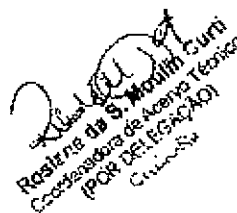 Roslane da S. Moulin Curti
Coordenadora de Acervo Técnico
(POR DELEGAÇÃO)